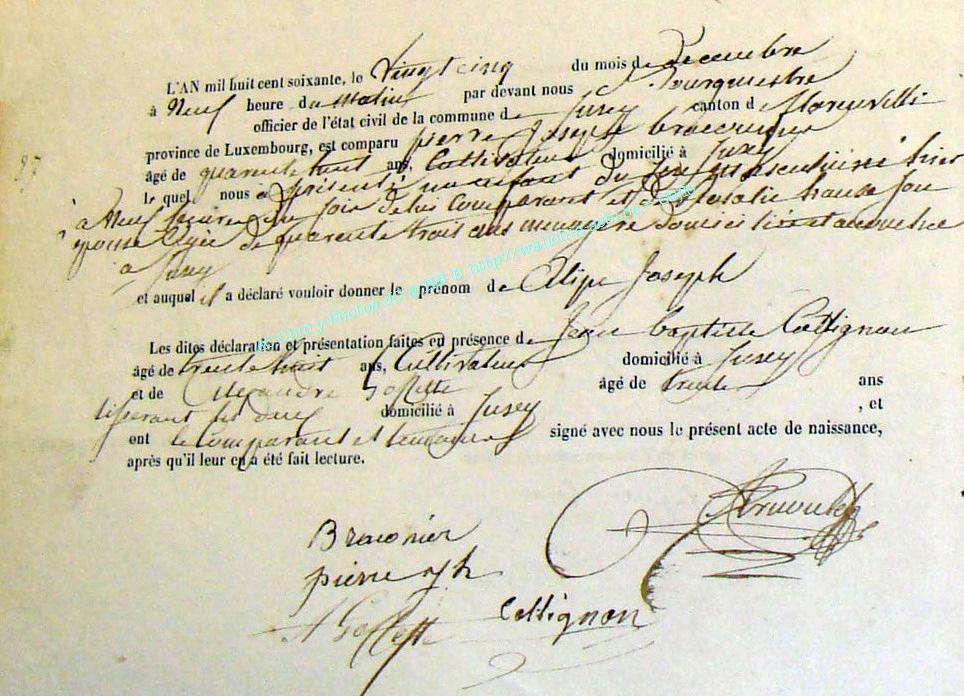 L'AN mil huit cent soixante, le Vingt cinq du mois de Décembre
à Neuf heure du matin par devant nous Bourgmestre
officier de l'état civil de la commune de Juzey canton de
province de Luxembourg, est comparu pierre Joseph braconnier
âgé de quarente huit ans, Cultivateur domicilié à Juzey
97
le quel nous a présenté un enfant du sexe masculin né hier
à Neuf heures du soir de lui Comparant et de Rosalie son
épouse agée de quarente trois ans menagère domiciliée et avec lui
a Juzey
et auquel il a déclaré vouloir donner le prénom de Joseph
Les dites déclaration et présentation faites en présence de Jean baptiste Collignon
âgé de trente huit ans, Cultivateur domicilié à Juzey
et de Alexandre Goffette âgé de trente ans
tisserant les deux domicilié à Juzey , et
ont le comparant et temoins signé avec nous le présent acte de naissance,
après qu'il leur en a été fait lecture.
Braconier
pierre jh
A Goffette Collignon